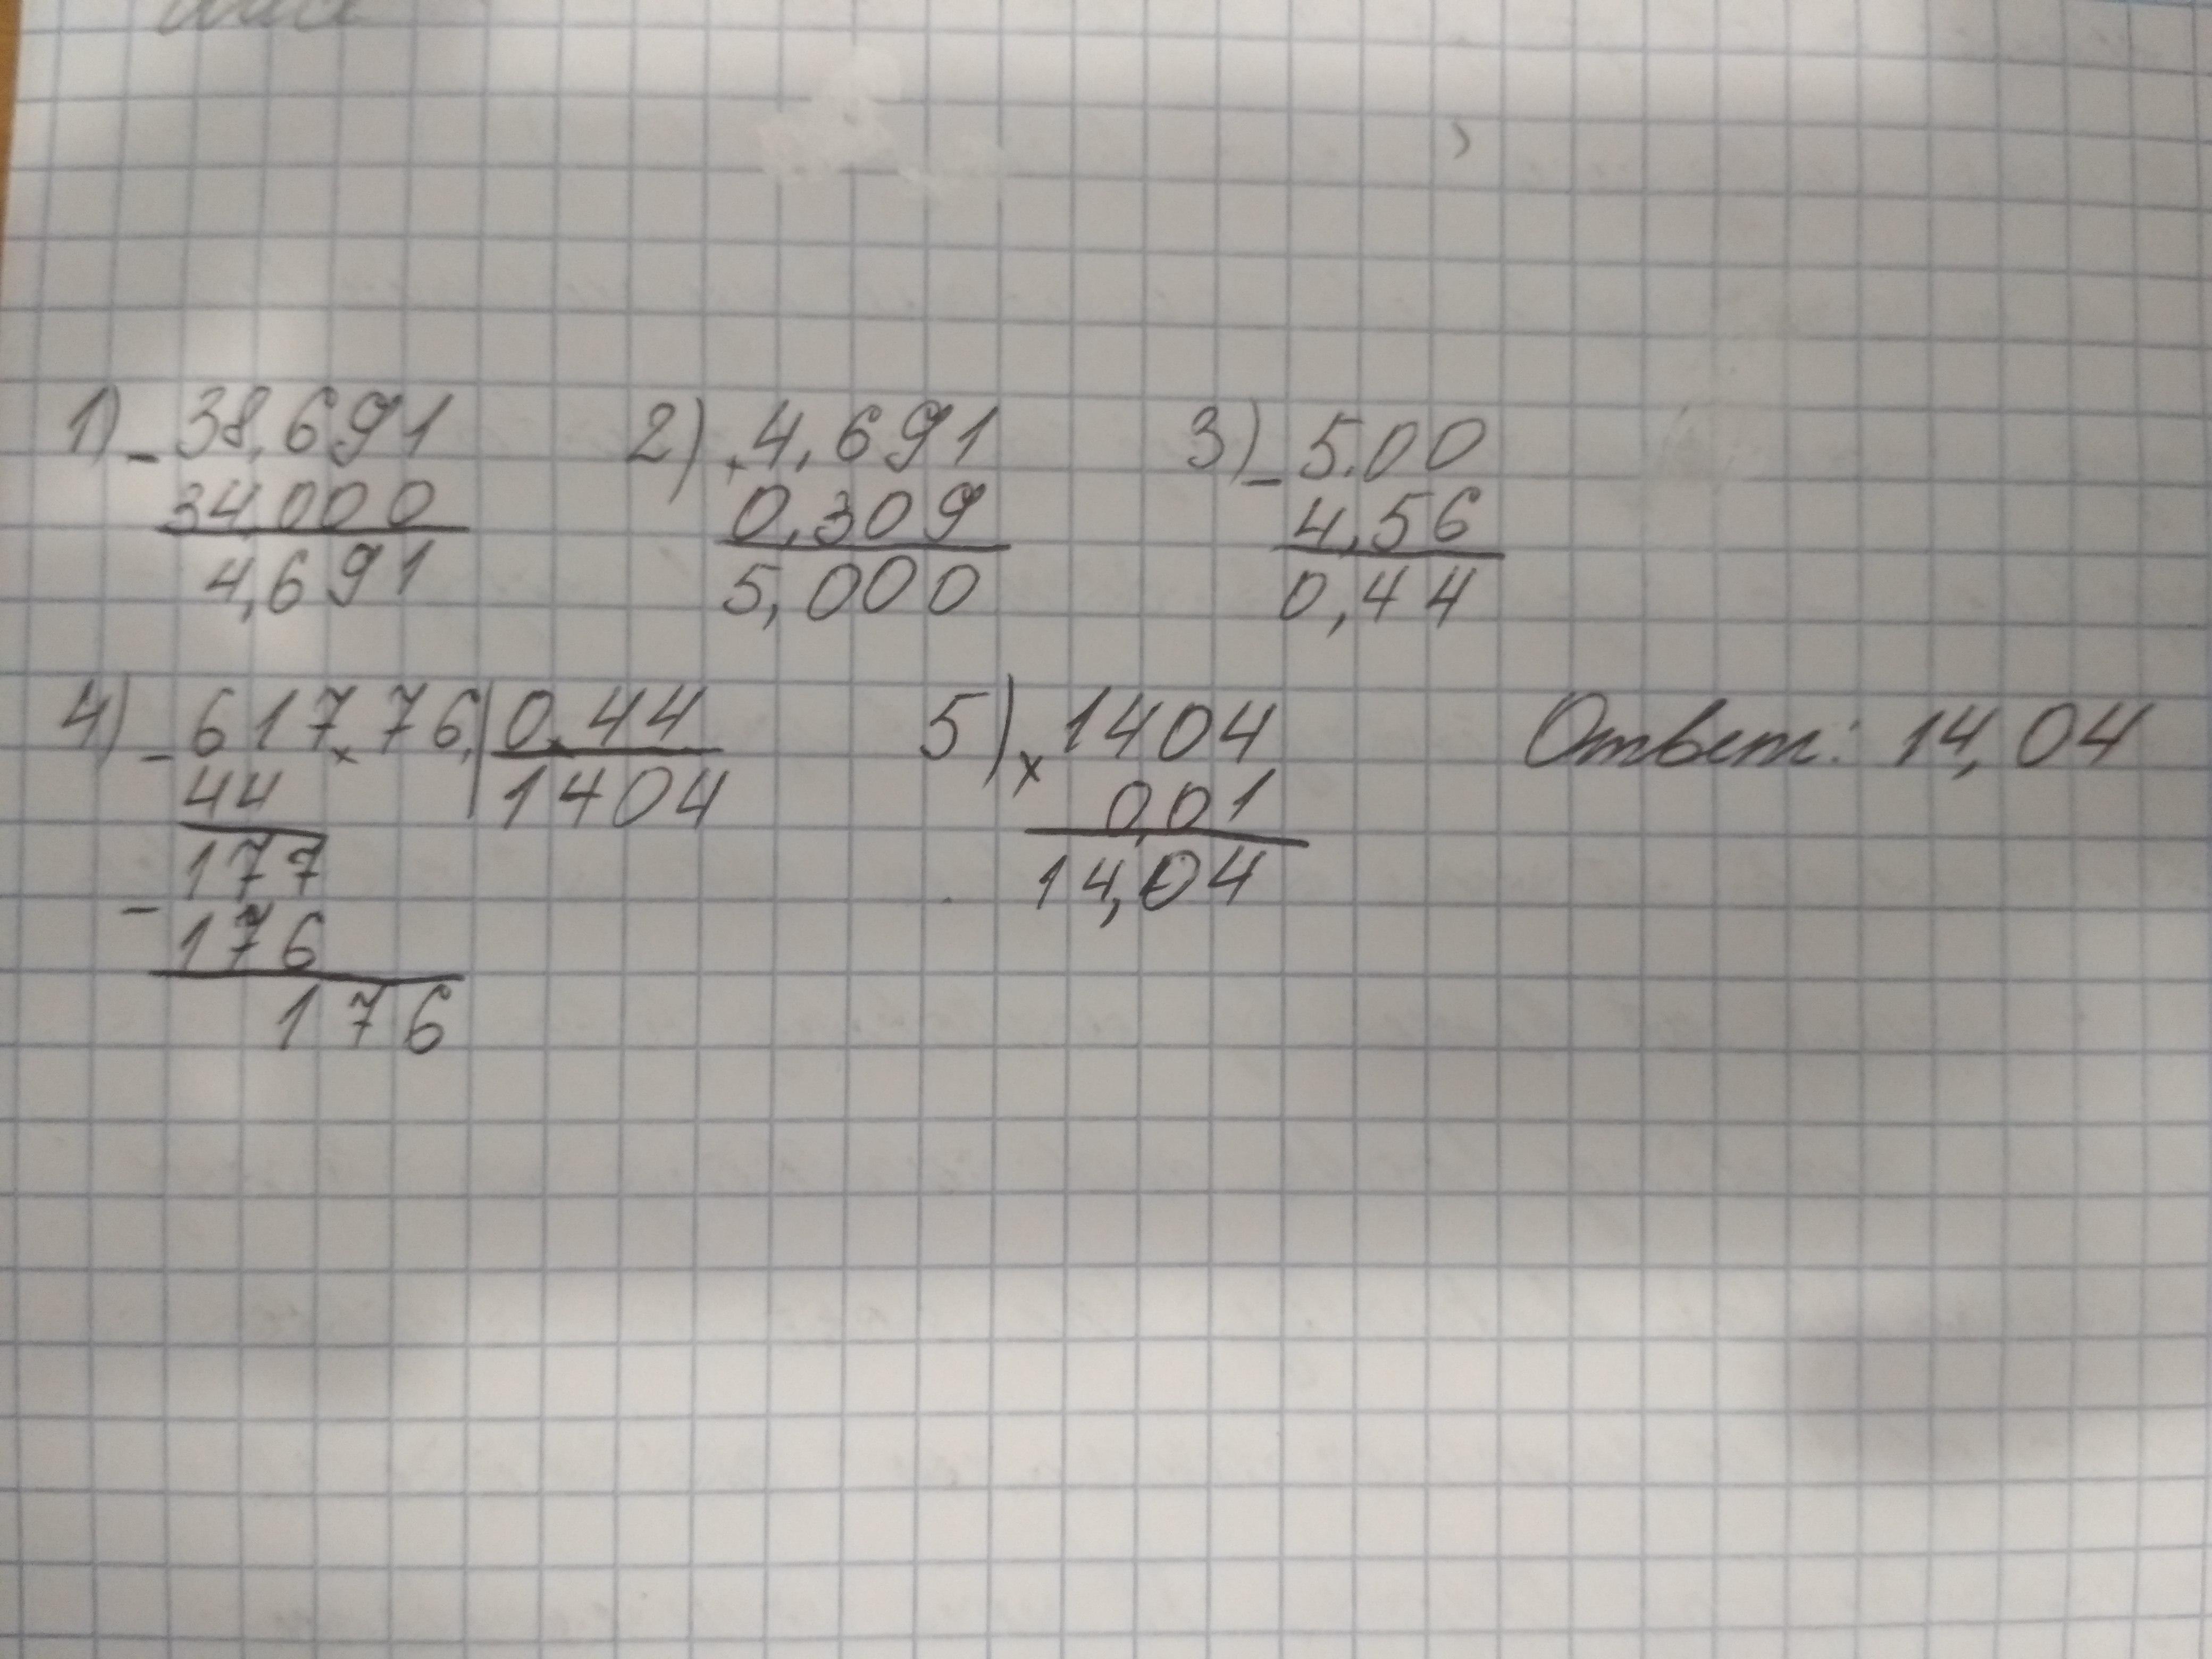 1) - 38,691
34,000
4,691
2) + 4,691
0,309
5,000
3) - 5,00
4,56
0,44
4) - 617,76, | 0,44
44 1404
177
- 176
176
5) x 1404
0,01
14,04
Ответ: 14,04